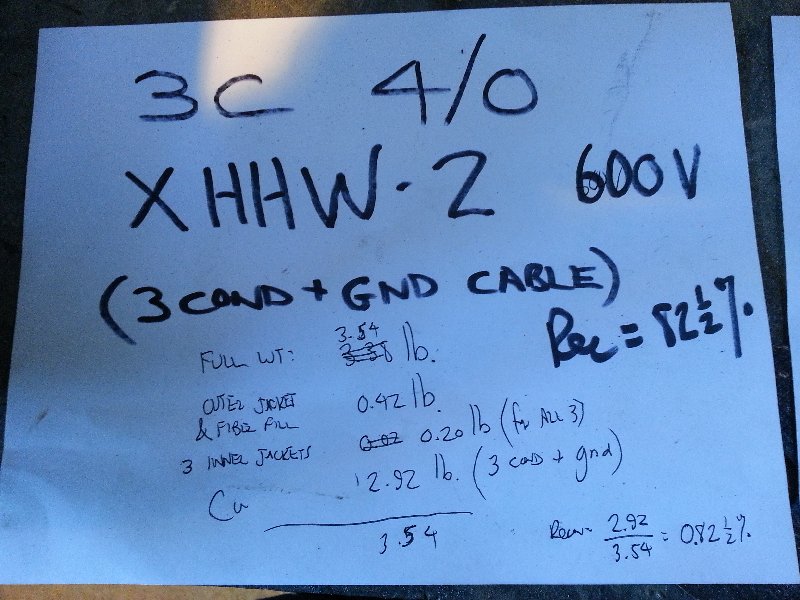 3C 4/0
XHHW-2 600V
(3 COND + GND CABLE)
Rec = 82 1/2 %.
3.54
FULL WT: lb.
OUTER JACKET 0.42 lb.
& FIBER FILL
3 INNER JACKETS 0.20 lb (for ALL 3)
Cu 2.92 lb. (3 cond + gnd)
3.54
Recov = 2.92/3.54 = 0.82 1/2 %